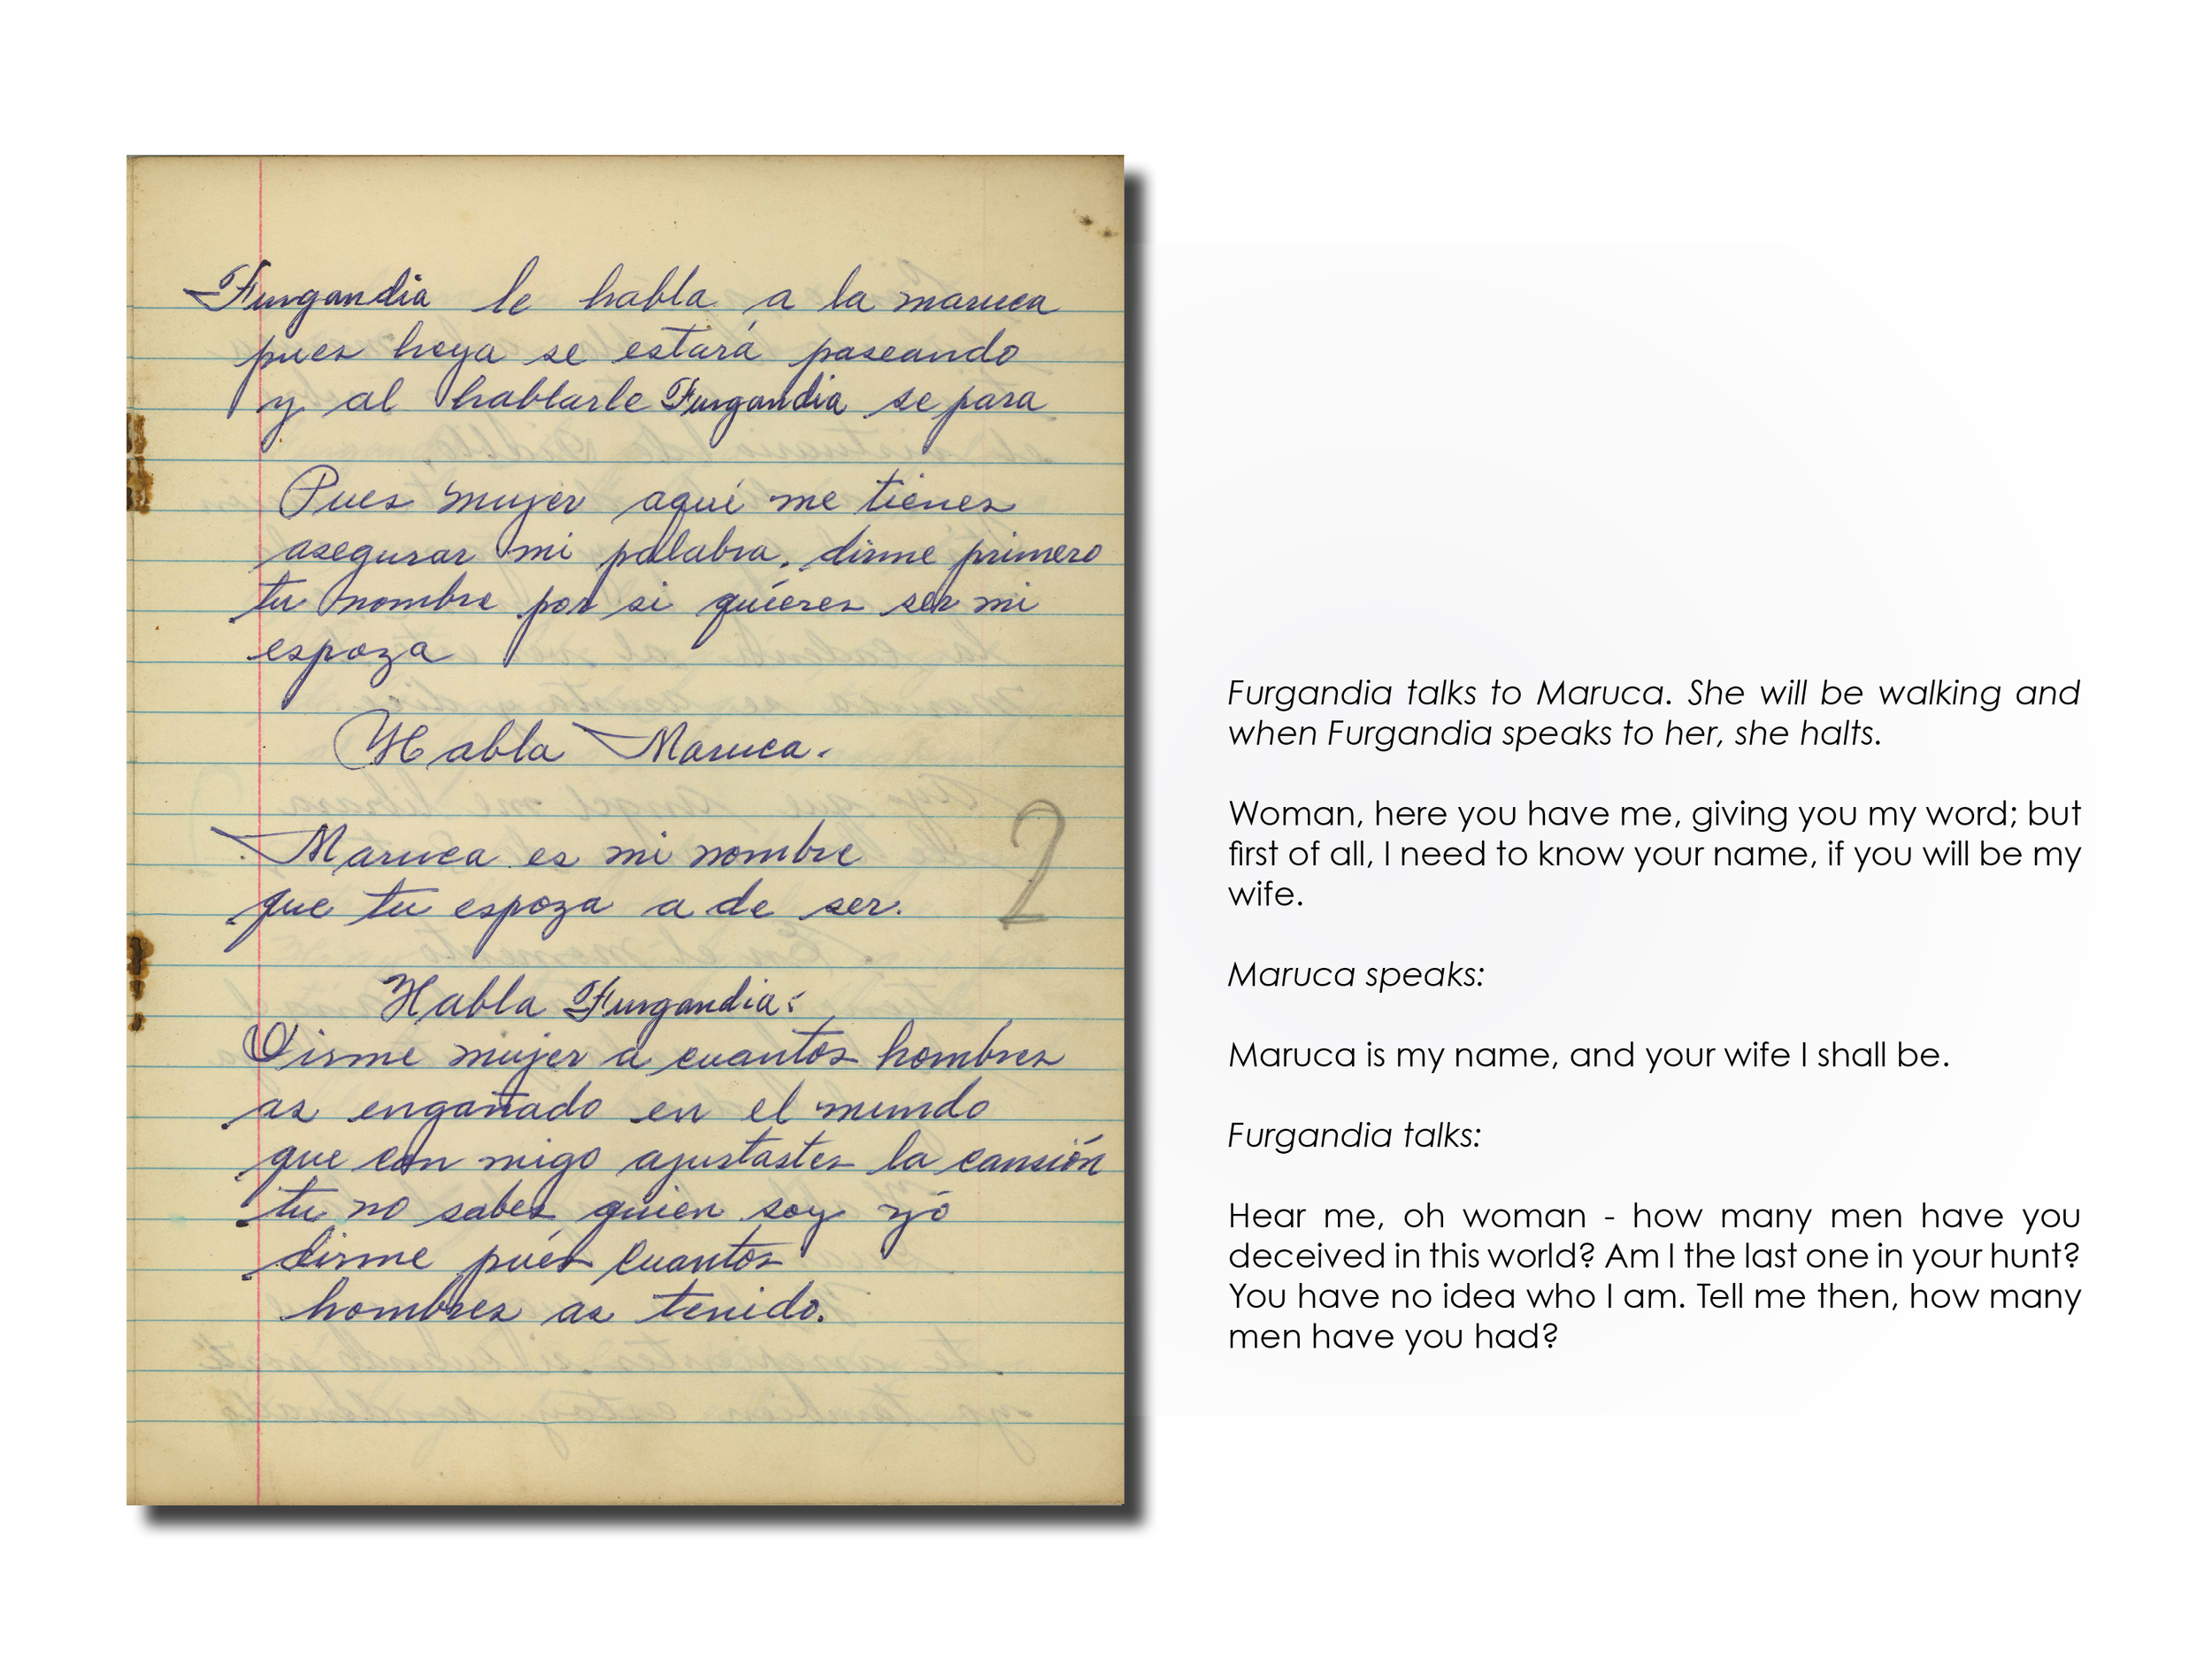 Furgandia le habla a la maruca
pues heya se estará paseando
y al hablarle Furgandia se para
Pues mujer aqui me tienes
asegurar mi palabra, dirme primero
tu nombre por si quieres ser mi
espoza
Habla Maruca.
Maruca es mi nombre
que tu espoza a de ser.
2
Habla Furgandia:
Dirme mujer a cuantos hombres
as engañado en el mundo
que con migo ajustastes la cansión
tu no sabes quien soy yó
dirme pués cuantos
hombres as tenido.
Furgandia talks to Maruca. She will be walking and
when Furgandia speaks to her, she halts.
Woman, here you have me, giving you my word; but
first of all, I need to know your name, if you will be my
wife.
Maruca speaks:
Maruca is my name, and your wife I shall be.
Furgandia talks:
Hear me, oh woman - how many men have you
deceived in this world? Am I the last one in your hunt?
You have no idea who I am. Tell me then, how many
men have you had?